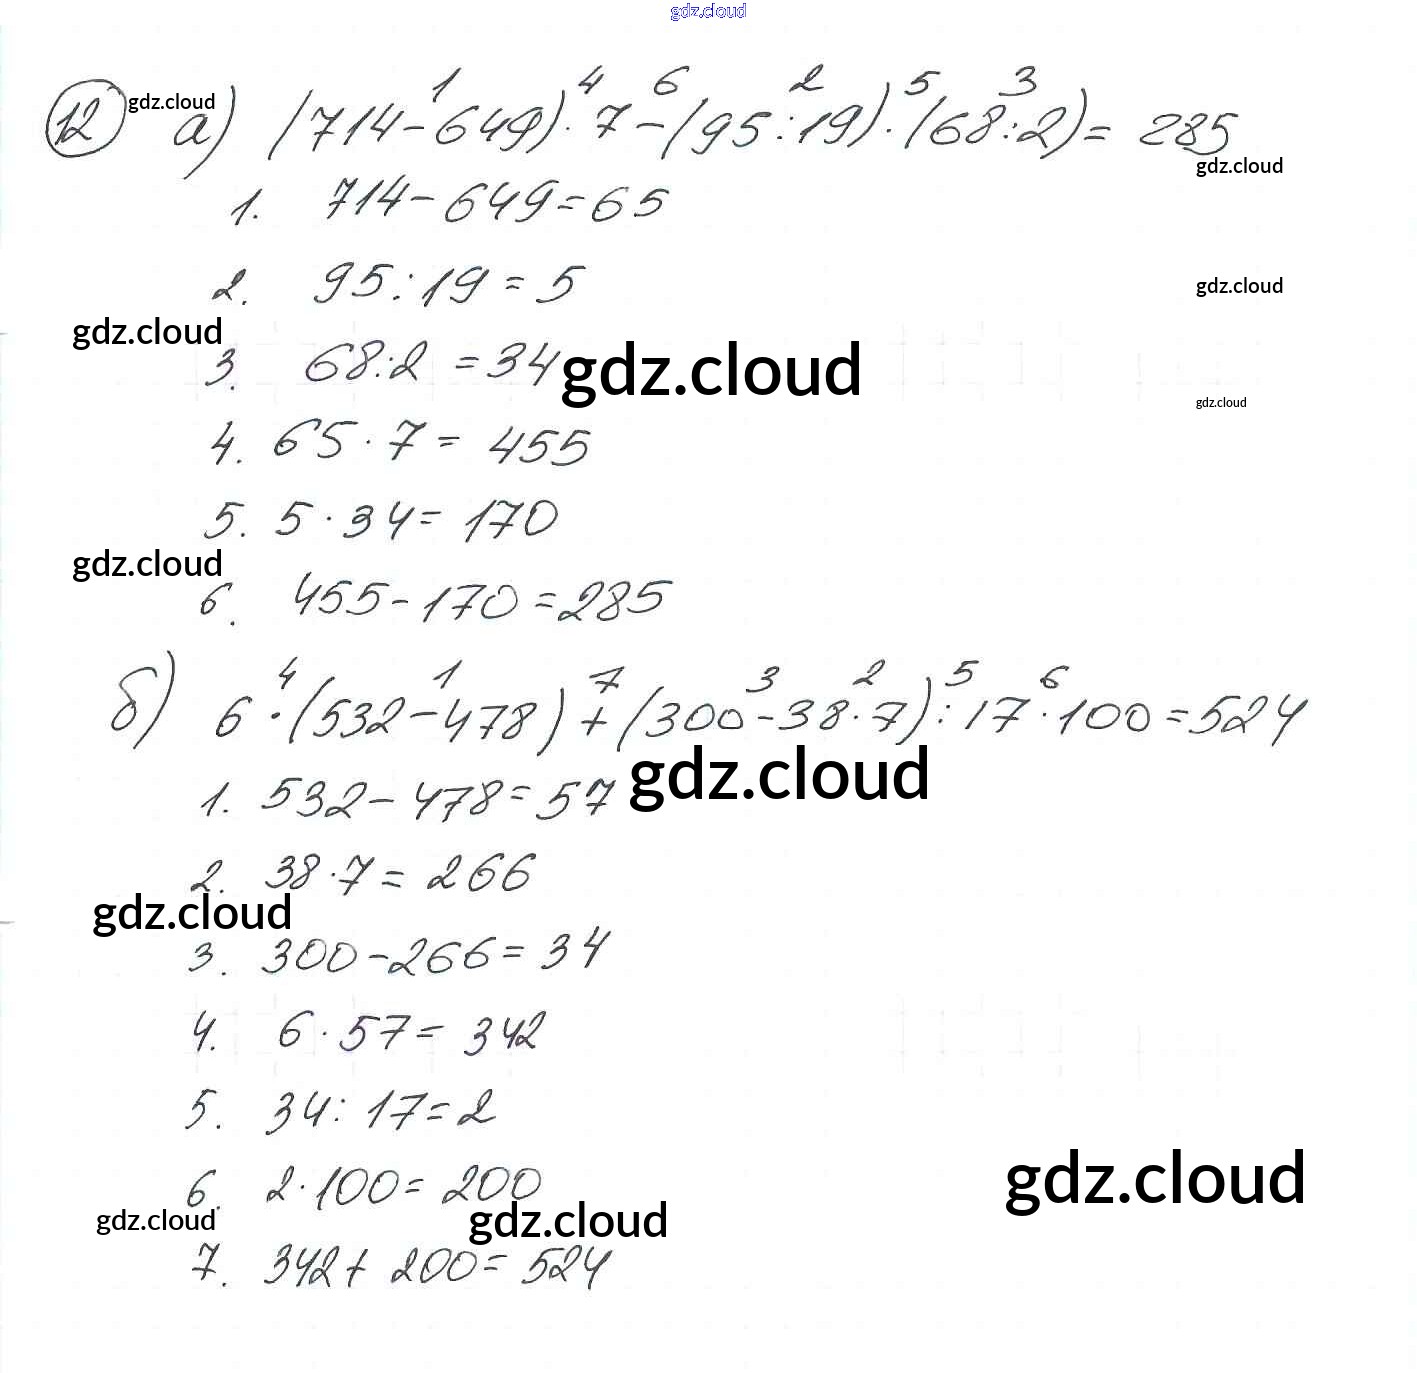 gdz.cloud
1 4 6 2 5 3
12 gdz.cloud а) (714-649)·7-(95:19)·(68:2)= 285
gdz.cloud
1. 714-649=65
2. 95:19=5
gdz.cloud
gdz.cloud
3. 68:2=34
gdz.cloud
gdz.cloud
4. 65·7=455
5. 5·34=170
gdz.cloud
6. 455-170=285
4 1 7 3 2 5 6
б) 6·(532-478)+(300-38·7):17·100=524
gdz.cloud
1. 532-478=57
2. 38·7=266
gdz.cloud
3. 300-266=34
4. 6·57=342
5. 34:17=2
gdz.cloud
6. 2·100=200
gdz.cloud gdz.cloud
7. 342+200=524